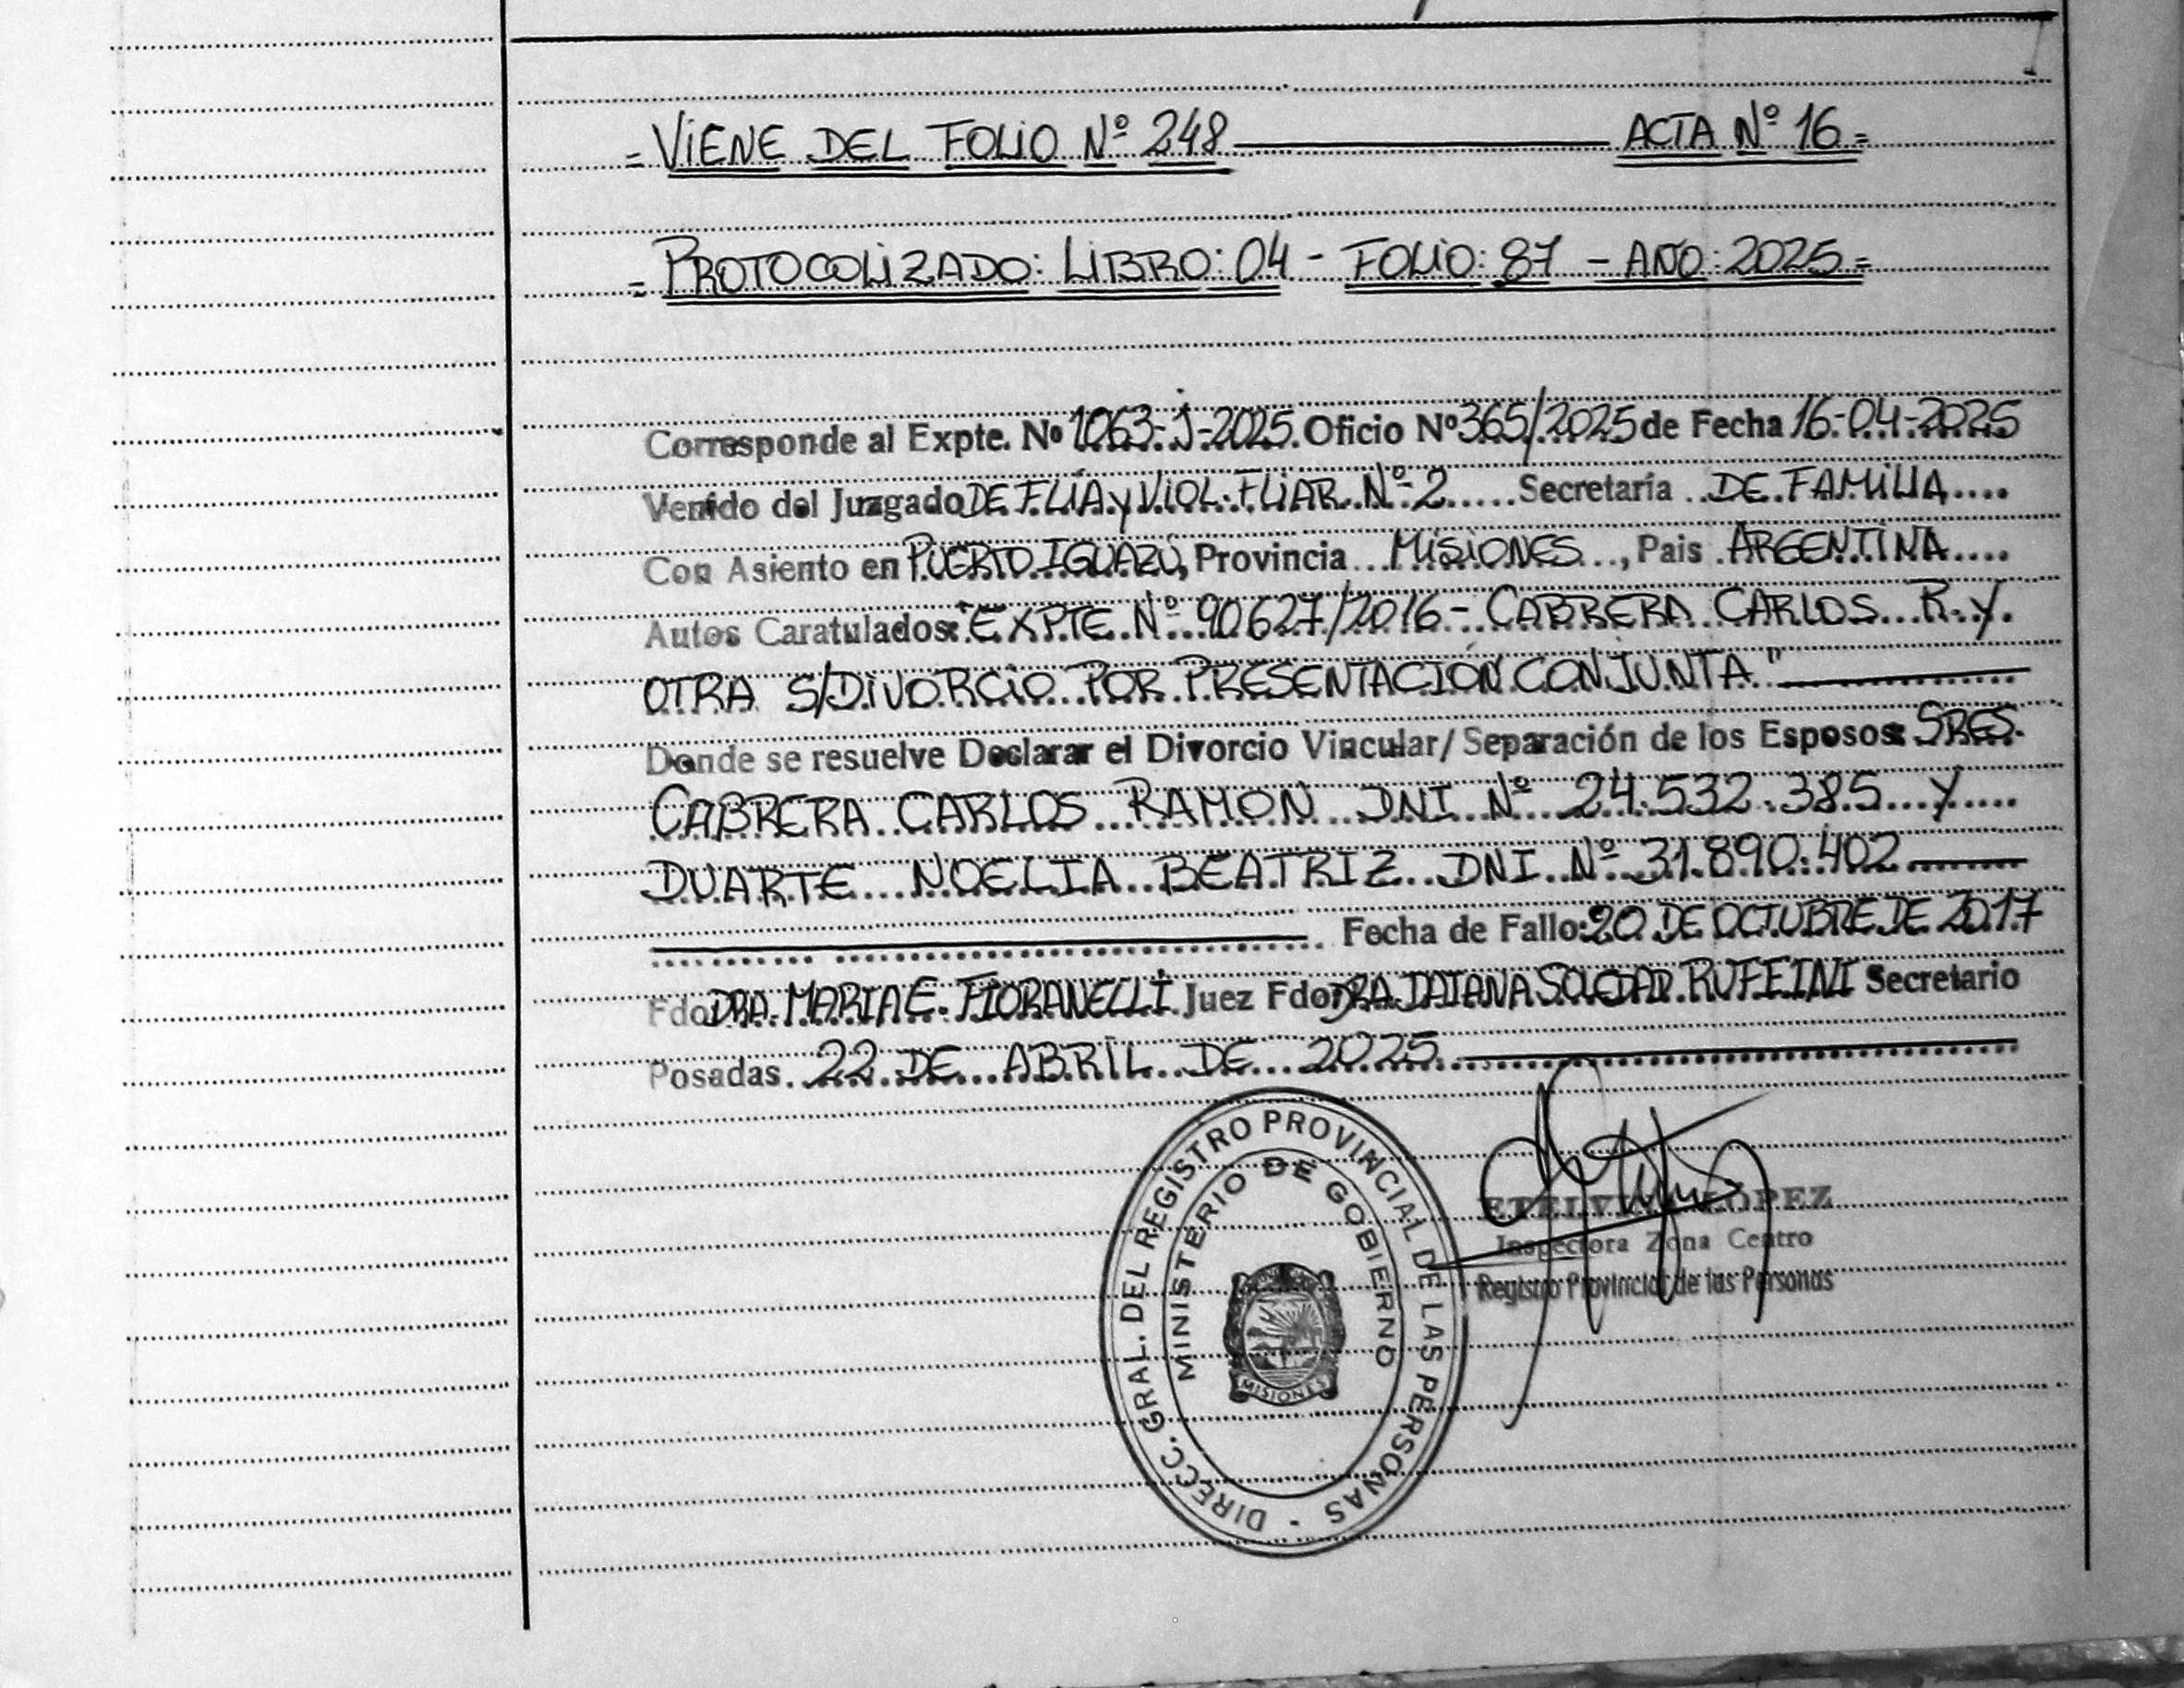 = VIENE DEL FOLIO Nº 248 ACTA Nº 16 =
= PROTOCOLIZADO: LIBRO: 04 - FOLIO: 87 - AÑO: 2025 =
Corresponde al Expte. Nº 1063-J-2025. Oficio Nº 365/2025 de Fecha 16-04-2025
Venido del Juzgado DE FLIA y VIOL. FLIAR. Nº 2 Secretaría DE FAMILIA
Con Asiento en PUERTO IGUAZÚ, Provincia MISIONES, Pais ARGENTINA
Autos Caratulados: "EXPTE. Nº 90627/2016 - CABRERA CARLOS R. y
OTRA S/DIVORCIO POR PRESENTACIÓN CONJUNTA"
Donde se resuelve Declarar el Divorcio Vincular/ Separación de los Esposos: SRES.
CABRERA CARLOS RAMON DNI Nº 24.532.385 y
DUARTE NOELIA BEATRIZ DNI Nº 31.890.402
Fecha de Fallo: 20 DE OCTUBRE DE 2017
Fdo DRA. MARIA E. FIORANELLI Juez Fdo: DRA DAIANA SOLEDAD RUFFINI Secretario
Posadas 22 DE ABRIL DE 2025
DIRECC. GRAL. DEL REGISTRO PROVINCIAL DE LAS PERSONAS -
MINISTERIO DE GOBIERNO
MISIONES
LOPEZ
Inspectora Zona Centro
Registro Provincial de las Personas